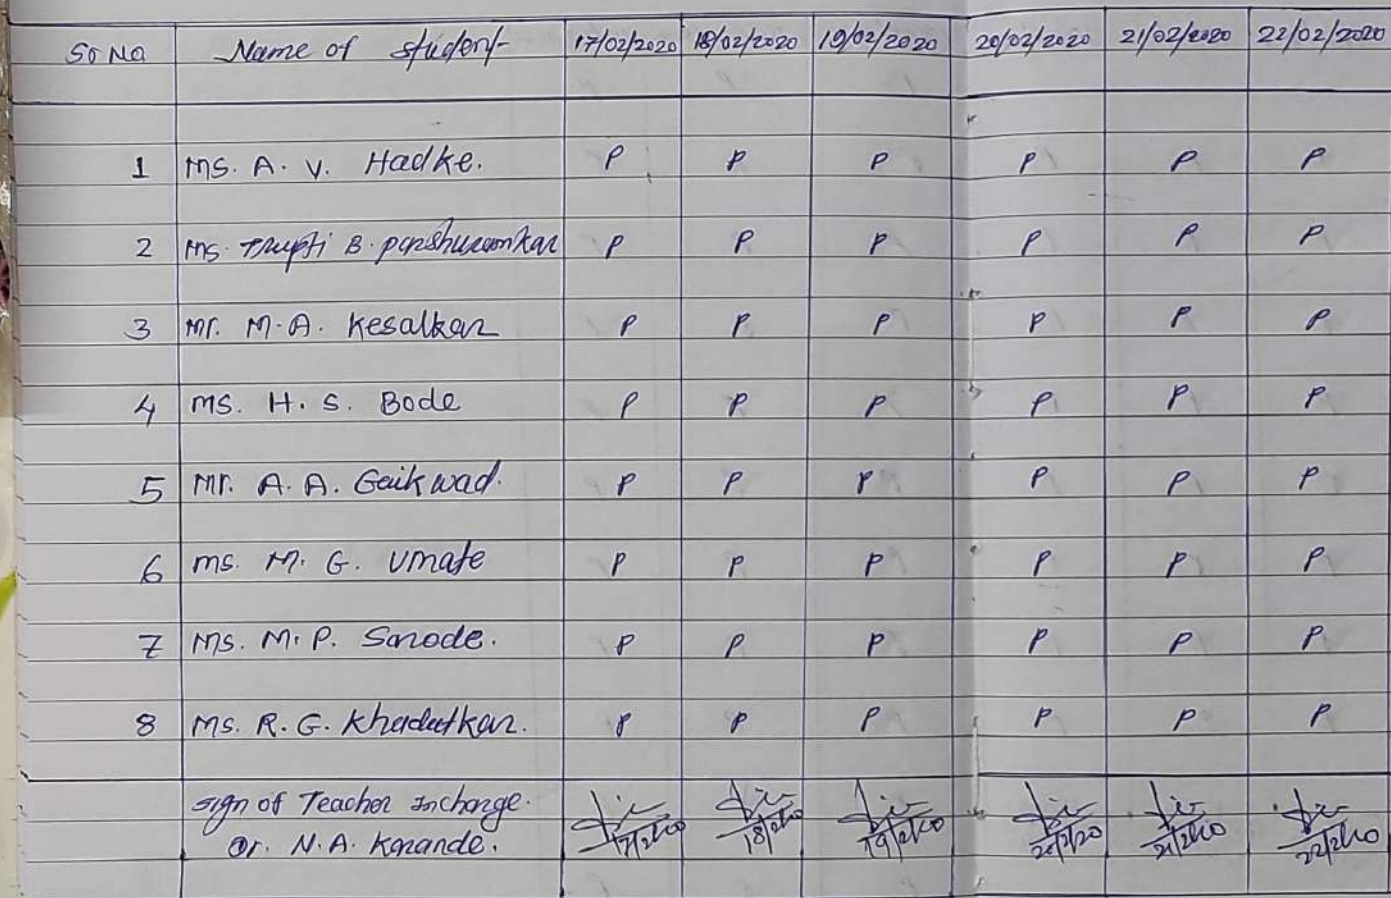 Sr No Name of student 17/02/2020 18/02/2020 19/02/2020 20/02/2020 21/02/2020 22/02/2020
1 Ms. A. V. Hadke. P P P P P P
2 Ms. Trupti B. parshuramkar P P P P P P
3 Mr. M.A. Kesalkar P P P P P P
4 Ms. H. S. Bode P P P P P P
5 Mr. A. A. Gaikwad. P P P P P P
6 Ms. M. G. Umate P P P P P P
7 Ms. M. P. Sarode. P P P P P P
8 Ms. R. G. Khadatkar. P P P P P P
sign of Teacher Incharge.
Dr. N.A. Karande. 17/2/20 18/2/20 19/2/20 20/2/20 21/2/20 22/2/20